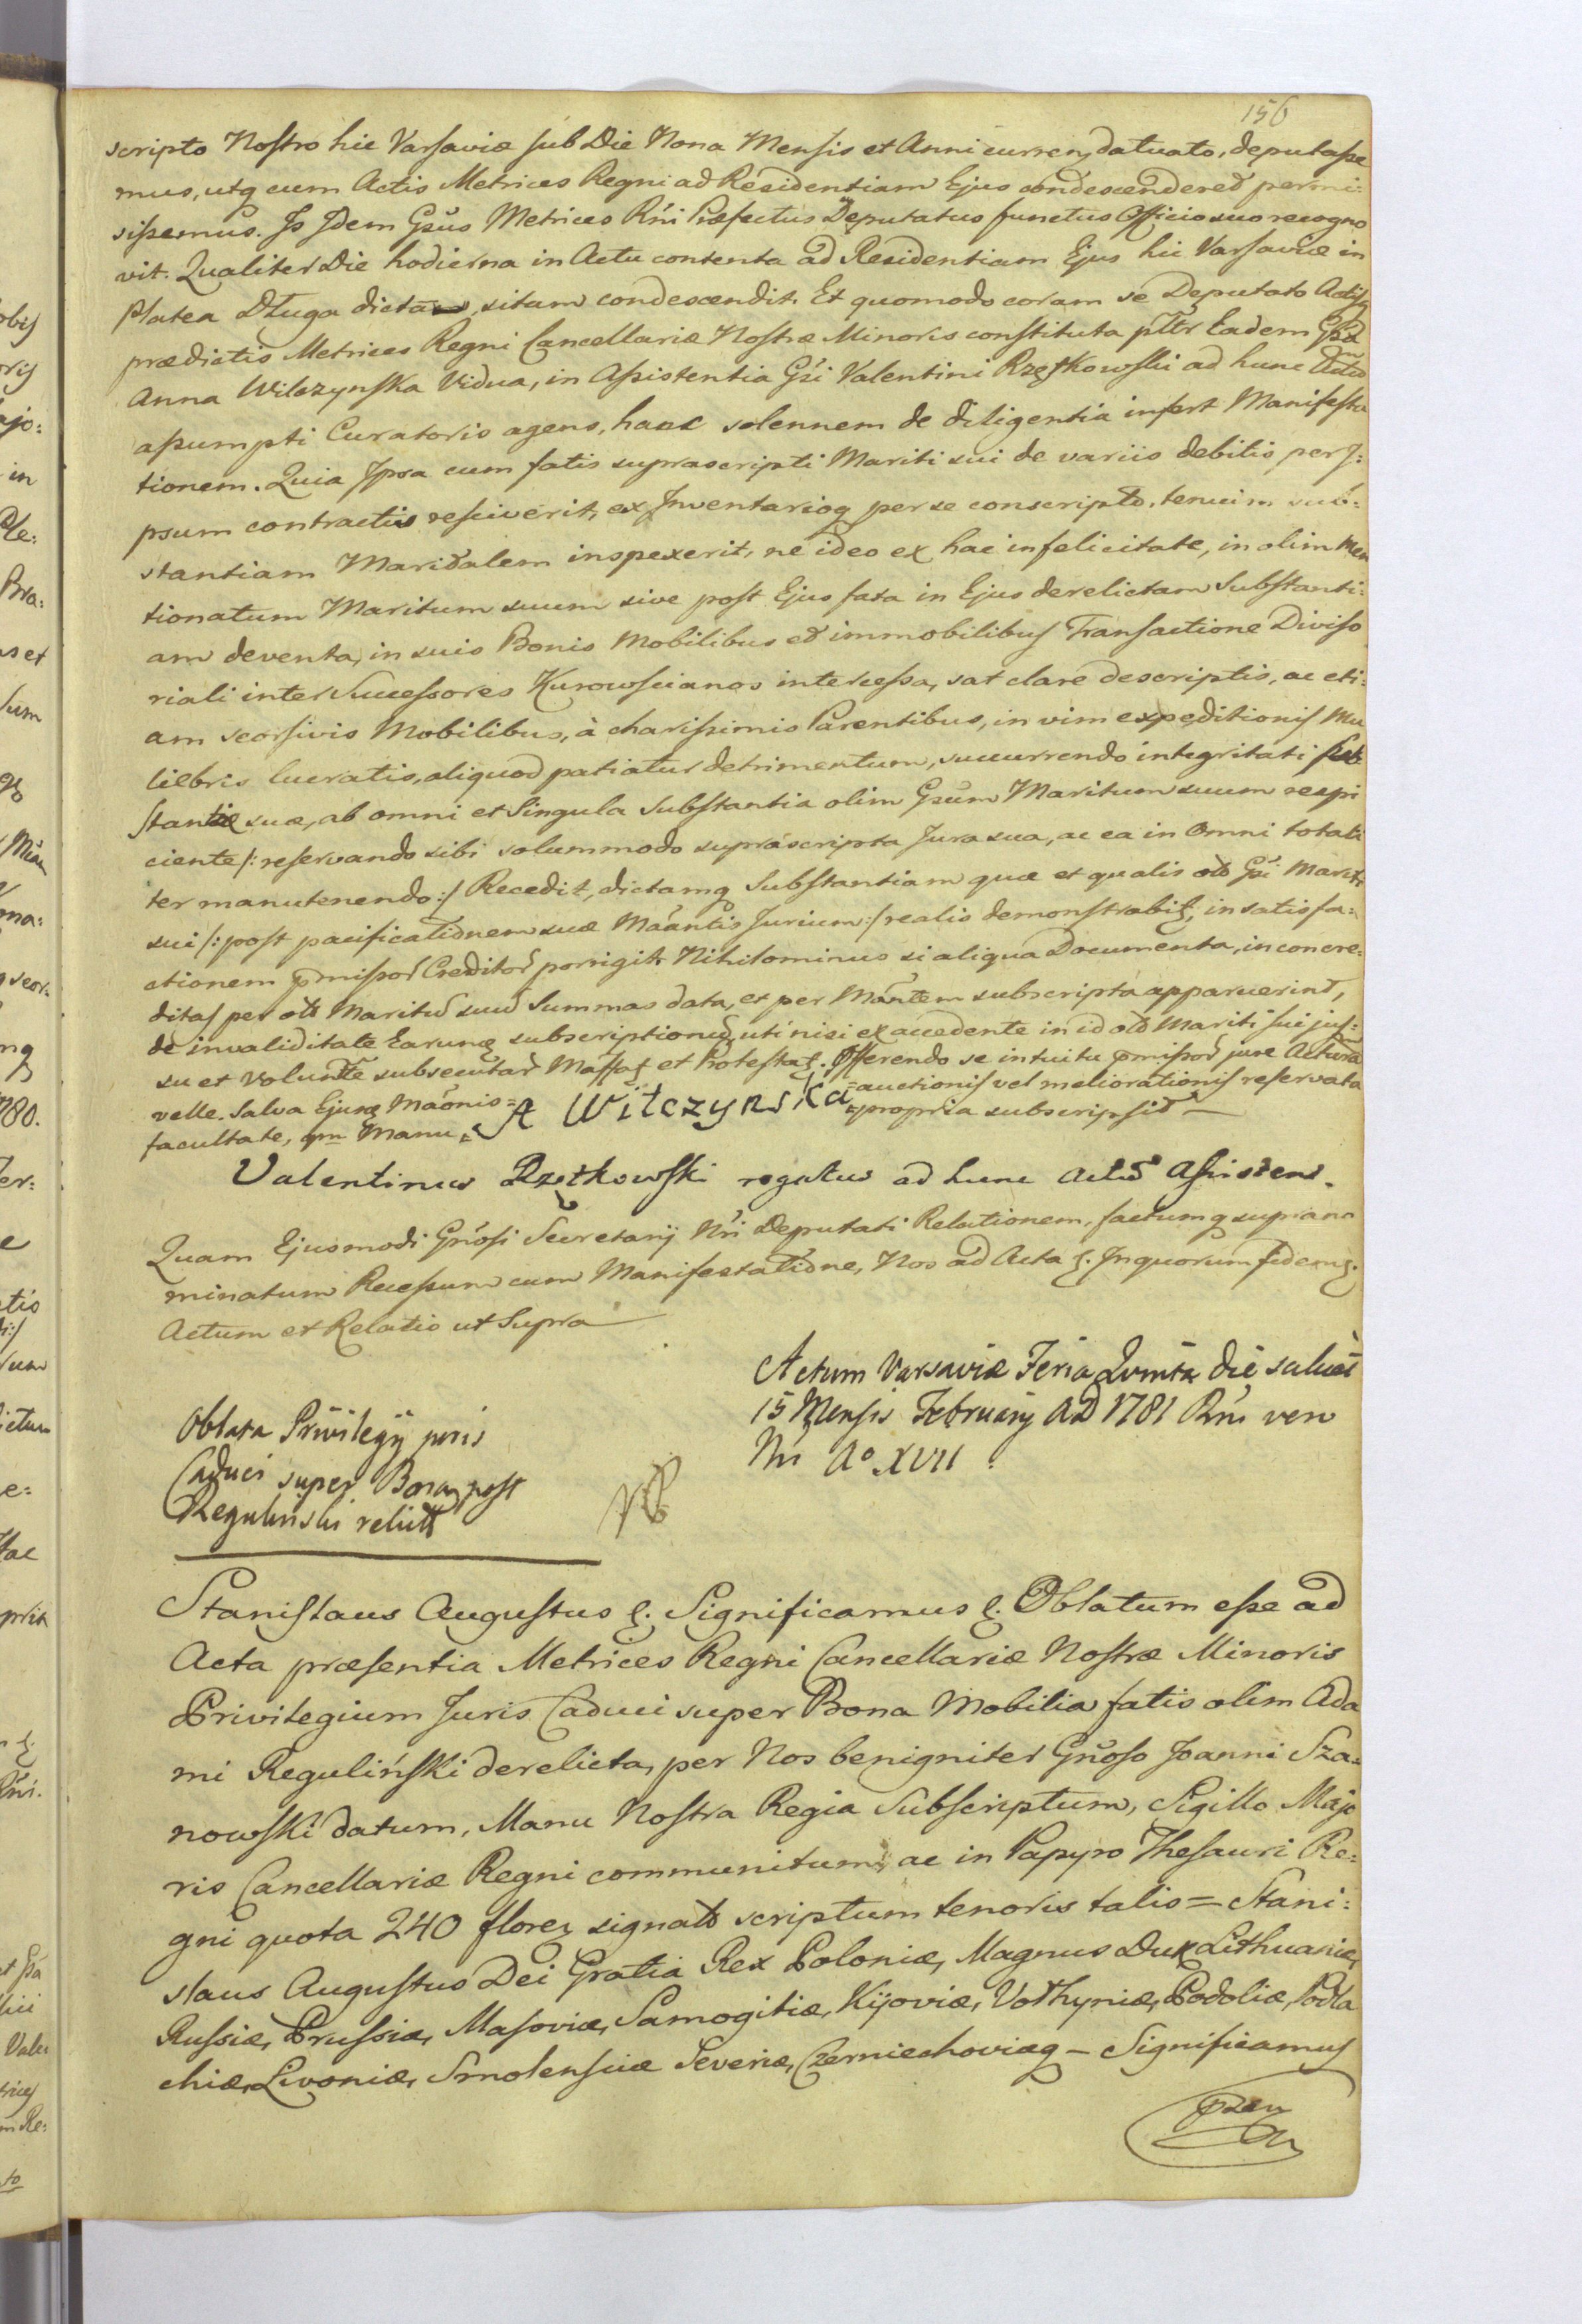 156
scripto Nostro hic Varsaviæ sub Die Nona Mensis et Anni curren datuato, deputasse
mus, utq cum Actis Metrices Regni ad Residentiam Ejus condescenderet permi:
sissemus. Is Idem Gsus Metrices Rni Præfectus Deputatus functus Officio suo recogno
vit. Qualiter Die hodierna in Actu contenta ad Residentiam Ejus hic Varsaviæ in
Platea Długa dicta sitam condescendit. Et quomodo coram se Deputato Actisq
prædictis Metrices Regni Cancellariæ Nostræ Minoris constituta pltr Eadem Gsa
Anna Wilczynska Vidua, in Assistentia Gsi Valentini Rzętkowski ad hunc Actum
assumpti Curatoris agens, hanc solennem de diligentia infert Manifesta
tionem. Quia Ipsa cum fatis suprascripti Mariti sui de variis debitis per I:
psum contractis resciverit, ex Inventarioq per se conscripto, tenuem sub:
stantiam Maritalem inspexerit, ne ideo ex hac infelicitate, in olim Men
tionatum Maritum suum sive post Ejus fata in Ejus derelictam Substanti:
am deventa, in suis Bonis Mobilibus et immobilibus Transactione Diviso
riali inter Successores Kurowscianos intercessa, sat clare descriptis, ac eti:
am seorsivis Mobilibus, à charissimis Parentibus, in vim expeditionis Mu
liebris lucratis, aliquod patiatur detrimentum, succurrendo integritati sub
stantiæ suæ, ab omni et Singula Substantia olim Gsum Maritum suum respi
ciente /: reservando sibi solummodo suprascripta Jura sua, ac ea in Omni totali
ter manutenendo :/ Recedit, dictamq Substantiam quæ et qualis olo Gsi Mariti
sui /: post pacificationem suæ Maantis Jurium :/ realis demonstrabit, in satisfa:
ctionem pmissor Creditor porrigit. Nihilominus si aliqua Documenta, in concre:
ditas per olo Maritu suu Summas data, et per Maantem subscripta apparuerint,
de invaliditate Earunq subscriptionu, uti nisi ex accedente in id olo Mariti sui jus:
su et Volunte subsecutar Maffat et Protestat. Offerendo se intuitu pmissor jure Acturam
velle. Salva Ejusq Maonis = auctionis vel meliorationis reservata
facultate, qm Manu = A Wilczynska = propria subscripsit —
Valentinus Rzętkowski rogatus ad hunc Actu Assistens.
Quam Ejusmodi Gnosi Secretarij Nri Deputati Relationem, factumq suprano
minatum Recessum cum Manifestatione, Nos ad Acta &. In quorum fidem &.
Actum et Relatio ut Supra
Actum Varsaviæ Feria Quinta die scilicet
15 Mensis Februarij AD 1781 Rni vero
Nri Ao XVII
Oblata Privilegij juris
Caduci super Bona post
Regulinski relicta
Stanislaus Augustus &. Significamus &. Oblatum esse ad
Acta præsentia Metrices Regni Cancellariæ Nostræ Minoris
Privilegium Juris Caduci super Bona Mobilia fatis olim Ada
mi Reguliński derelicta, per Nos benigniter Gnoso Joanni Sza:
nowski datum, Manu Nostra Regia Subscriptum, Sigillo Majo
ris Cancellariæ Regni communitum, ac in Papyro Thesauri Re:
gni quota 240 florez signato scriptum tenoris talis = Stani:
slaus Augustus Dei Gratia Rex Poloniæ, Magnus Dux Lithuaniæ,
Russiæ, Prussiæ, Masoviæ, Samogitiæ, Kijoviæ, Volhyniæ, Podoliæ, Podla
chiæ, Livoniæ, Smolensciæ Severiæ, Czerniechoviæq — Significamus